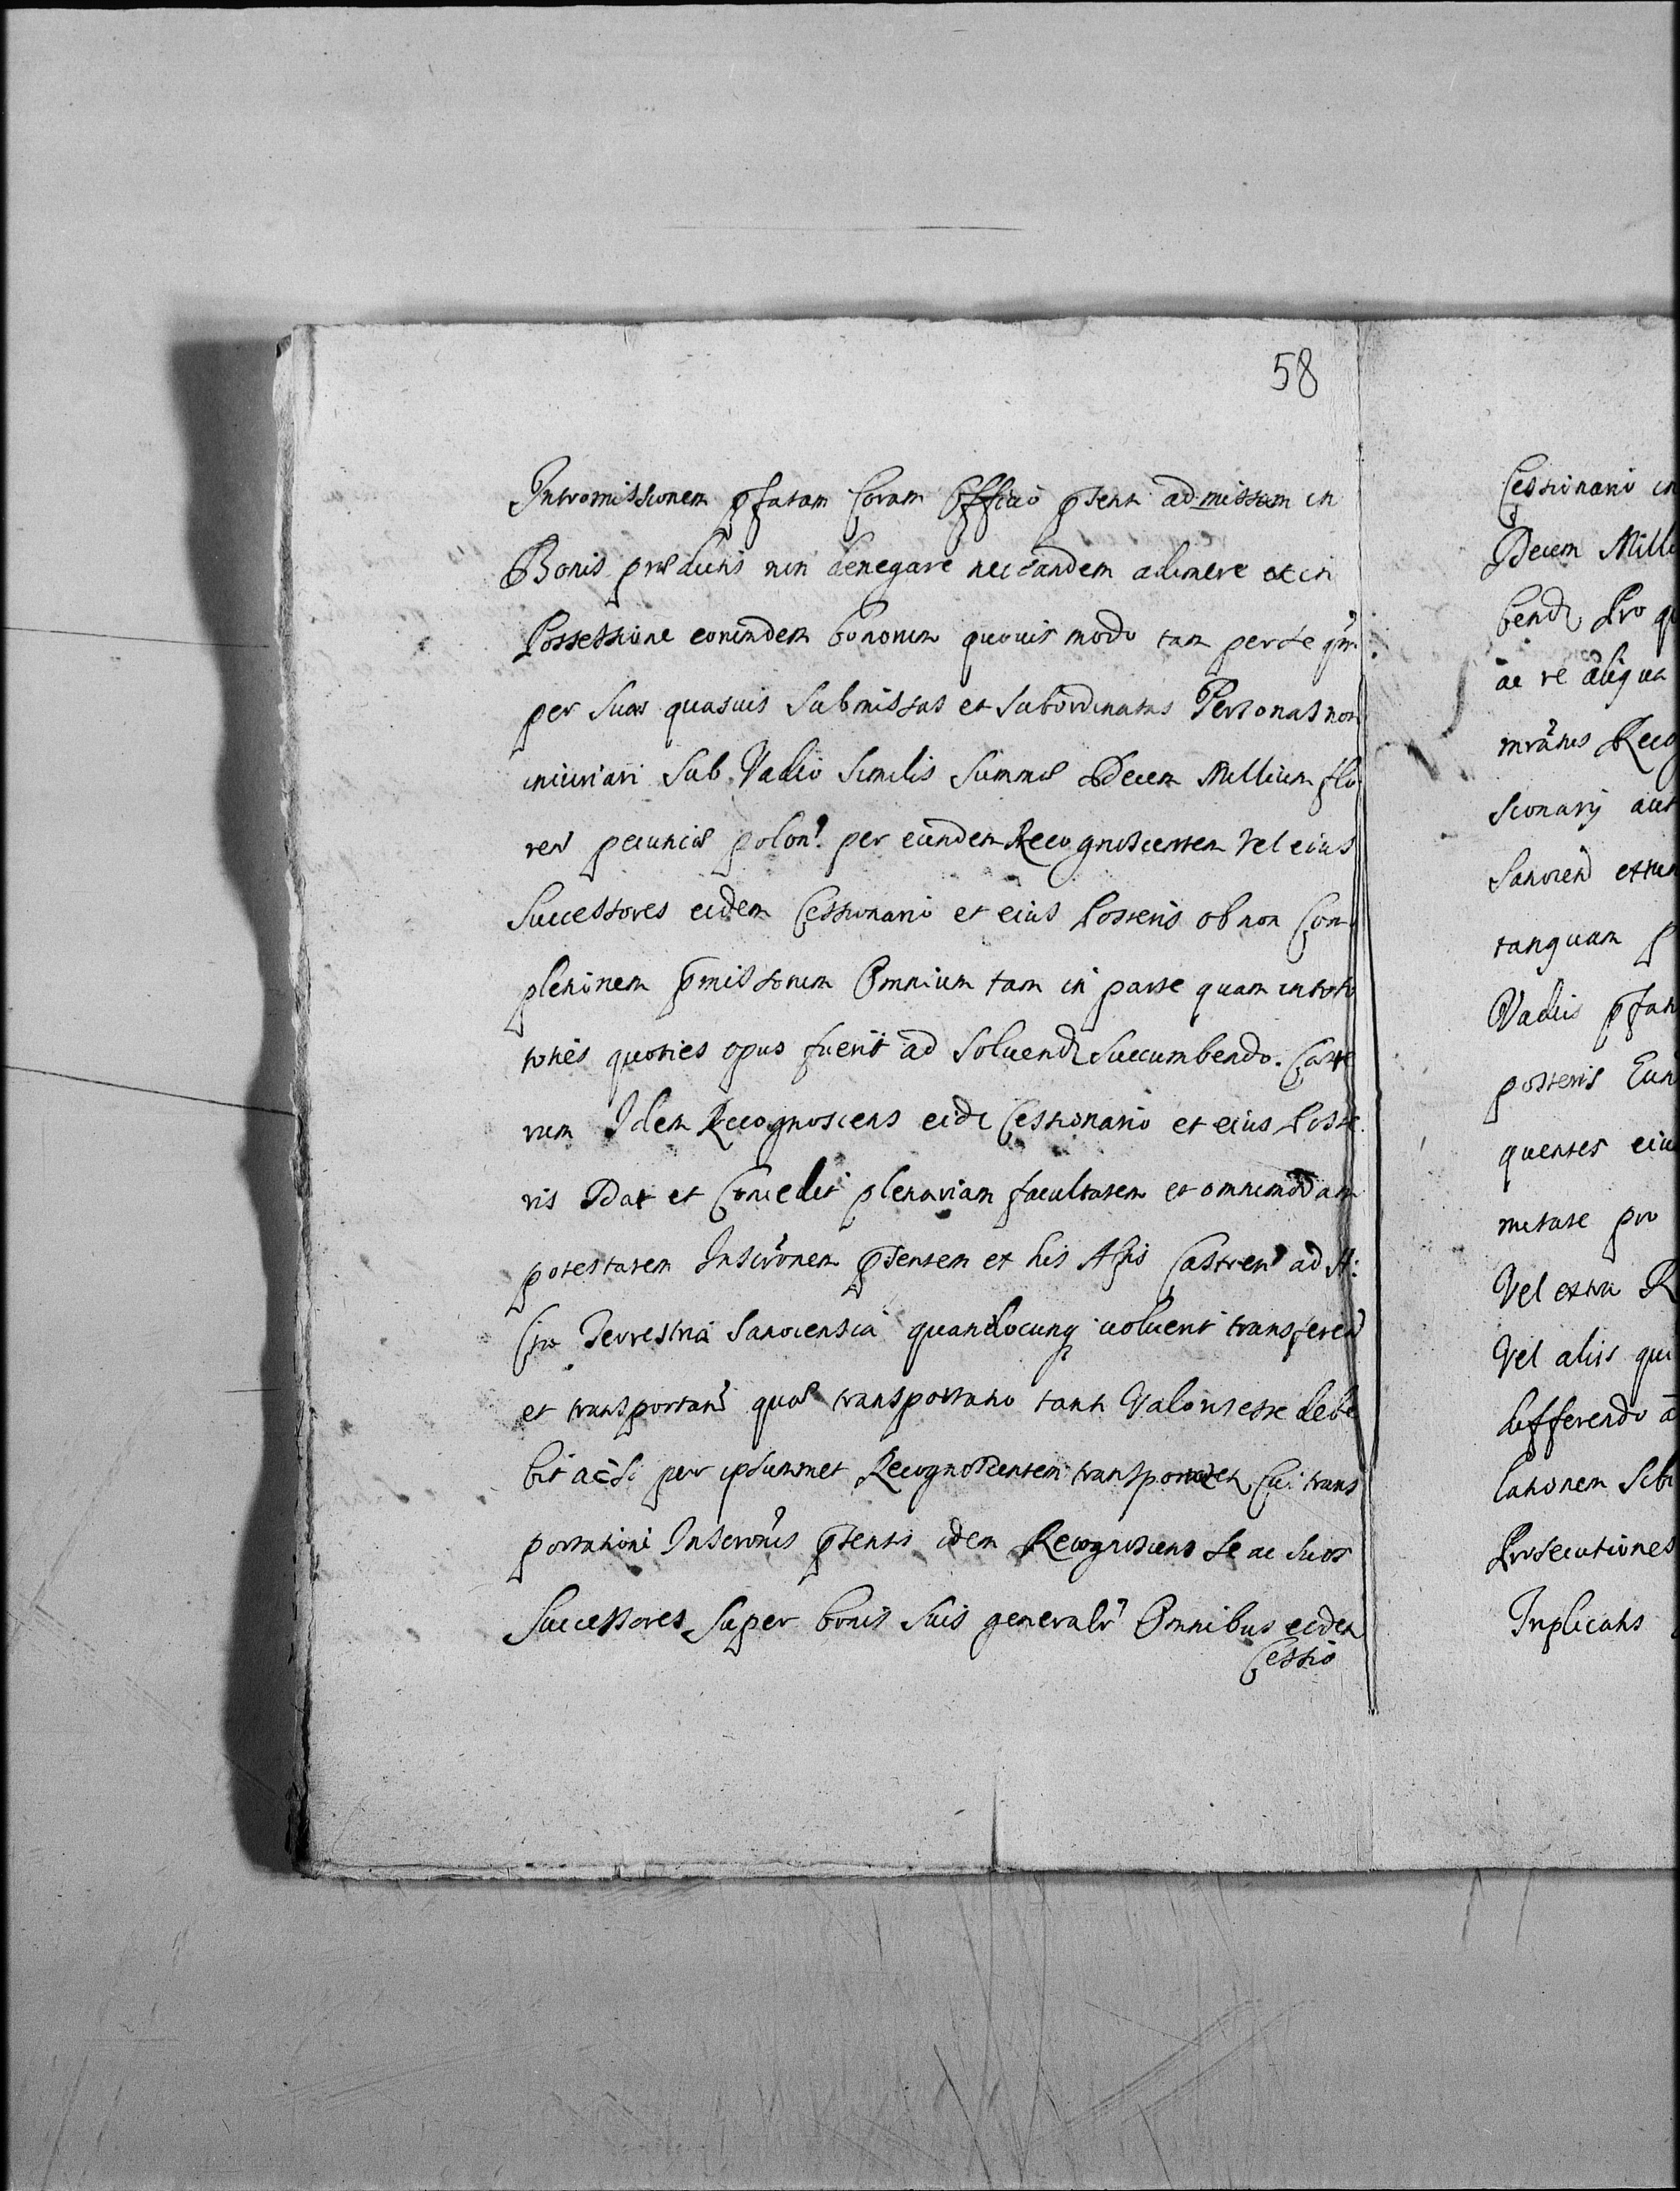 58
Intromissionem pſatam Coram Officio pſenti admissam in
Bonis prædictis non denegare nec eandem adimere et in
Possessione eorundem bonorum quovis modo tam per se qm̃
per suas quasvis submissas et subordinatas Personas non
iniuriari sub Vadio similis summæ Decem Millium flo
ren pecuniæ polon. per eundem Recognoscentem Vel eius
Successores eidem Cessionario et eius Posteris ob non Com
pletionem p̄missorum Omnium tam in parte quam in toto
toties quoties opus fuerit ad solvend succumbendo. Cæte
rum Idem Recognoscens eidē Cessionario et eius Poste
ris Dat et Concedit plenariam facultatem et omnimodam
potestatem Inscrõnem p̄sentem et his Actis Castren ad A:
cta Terrestria Sanocensia quandocunq voluerit transferend
et transportand quæ transportatio tanti Valoris esse debe
bit acsi per ipsummet Recognoscentem transportaret Cui trans
portationi Inscrõnis p̄sentis idem Recognoscens se ac suos
Successores super bonis suis generalr Omnibus eidem
Cessio
Cessionario in
Decem Milli
bend Pro qu
ac re aliqua
mrãtus Reco
scionarij aut
Sanocen
tanquam p
Vadiis p̄fat
posteris Eun
quentes eiu
mitate pro
Vel extra R
Vel aliis qui
differendo a
lationem sibi
Prosecutiones
Inplicatis